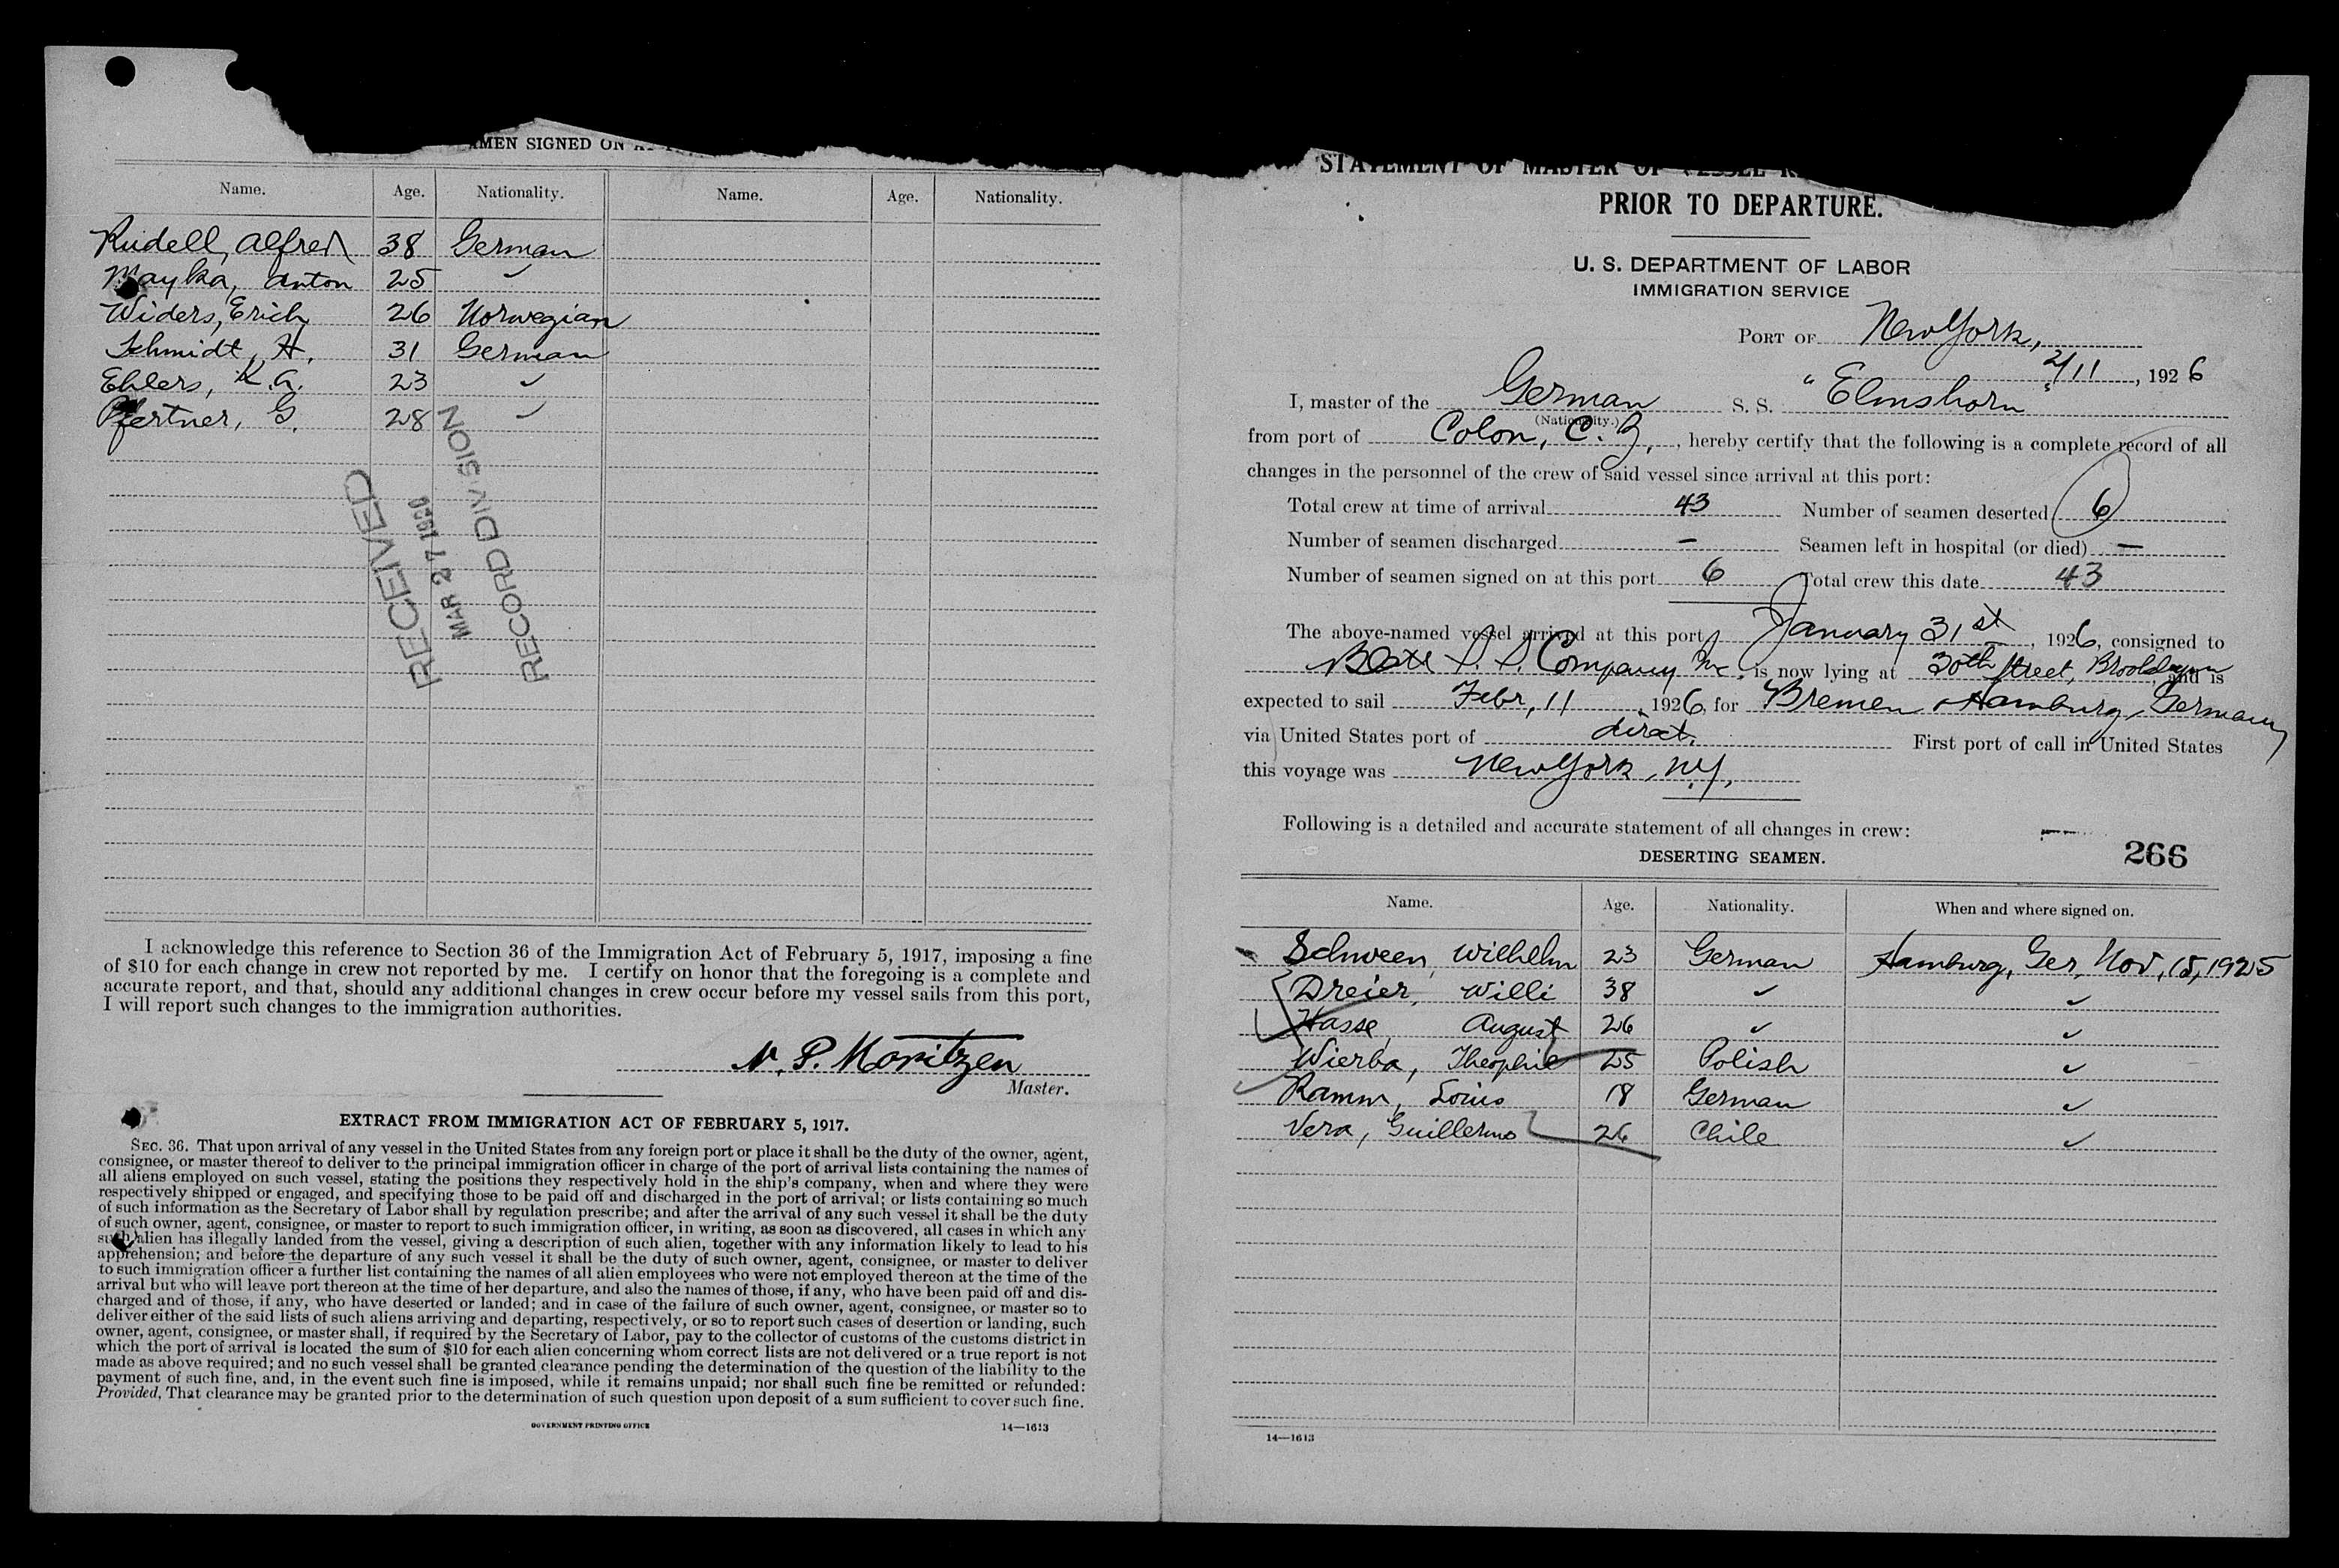 SEAMEN SIGNED ON AT
Name. Age. Nationality. Name. Age. Nationality.
Rudell, Alfred 38 German
Mayka, Anton 25 ✓
Widers, Erich 26 Norwegian
Schmidt, H. 31 German
Ehlers, K.A. 23 ✓
Pfertner, G. 28 ✓
RECEIVED
MAR 27 1926
RECORD DIVISION
I acknowledge this reference to Section 36 of the Immigration Act of February 5, 1917, imposing a fine
of $10 for each change in crew not reported by me. I certify on honor that the foregoing is a complete and
accurate report, and that, should any additional changes in crew occur before my vessel sails from this port,
I will report such changes to the immigration authorities.
N. P. Moritzen
Master.
EXTRACT FROM IMMIGRATION ACT OF FEBRUARY 5, 1917.
SEC. 36. That upon arrival of any vessel in the United States from any foreign port or place it shall be the duty of the owner, agent,
consignee, or master thereof to deliver to the principal immigration officer in charge of the port of arrival lists containing the names of
all aliens employed on such vessel, stating the positions they respectively hold in the ship's company, when and where they were
respectively shipped or engaged, and specifying those to be paid off and discharged in the port of arrival; or lists containing so much
of such information as the Secretary of Labor shall by regulation prescribe; and after the arrival of any such vessel it shall be the duty
of such owner, agent, consignee, or master to report to such immigration officer, in writing, as soon as discovered, all cases in which any
such alien has illegally landed from the vessel, giving a description of such alien, together with any information likely to lead to his
apprehension; and before the departure of any such vessel it shall be the duty of such owner, agent, consignee, or master to deliver
to such immigration officer a further list containing the names of all alien employees who were not employed thereon at the time of the
arrival but who will leave port thereon at the time of her departure, and also the names of those, if any, who have been paid off and dis-
charged and of those, if any, who have deserted or landed; and in case of the failure of such owner, agent, consignee, or master so to
deliver either of the said lists of such aliens arriving and departing, respectively, or so to report such cases of desertion or landing, such
owner, agent, consignee, or master shall, if required by the Secretary of Labor, pay to the collector of customs of the customs district in
which the port of arrival is located the sum of $10 for each alien concerning whom correct lists are not delivered or a true report is not
made as above required; and no such vessel shall be granted clearance pending the determination of the question of the liability to the
payment of such fine, and, in the event such fine is imposed, while it remains unpaid; nor shall such fine be remitted or refunded:
Provided, That clearance may be granted prior to the determination of such question upon deposit of a sum sufficient to cover such fine.
GOVERNMENT PRINTING OFFICE 14—1613
STATEMENT OF MASTER OF VESSEL
PRIOR TO DEPARTURE.
U. S. DEPARTMENT OF LABOR
IMMIGRATION SERVICE
PORT OF New York,
2/11, 1926
I, master of the German S. S. "Elmshorn"
(Nationality.)
from port of Colon, C. Z., hereby certify that the following is a complete record of all
changes in the personnel of the crew of said vessel since arrival at this port:
Total crew at time of arrival 43 Number of seamen deserted 6
Number of seamen discharged — Seamen left in hospital (or died) —
Number of seamen signed on at this port 6 Total crew this date 43
The above-named vessel arrived at this port January 31st, 1926, consigned to
S. S. Company Inc, is now lying at 30th Street, Brooklyn and is
expected to sail Febr, 11, 1926, for Bremen & Hamburg, Germany
via United States port of direct. First port of call in United States
this voyage was New York, N.Y.
Following is a detailed and accurate statement of all changes in crew:
DESERTING SEAMEN. 266
Name. Age. Nationality. When and where signed on.
Schween, Wilhelm 23 German Hamburg, Ger, Nov, 15, 1925
Dreier, Willi 38 ✓ ✓
Hasse, August 26 ✓ ✓
Wierba, Theophil 25 Polish ✓
Ramm, Louis 18 German ✓
Vera, Guillermo 26 Chile ✓
14—1613